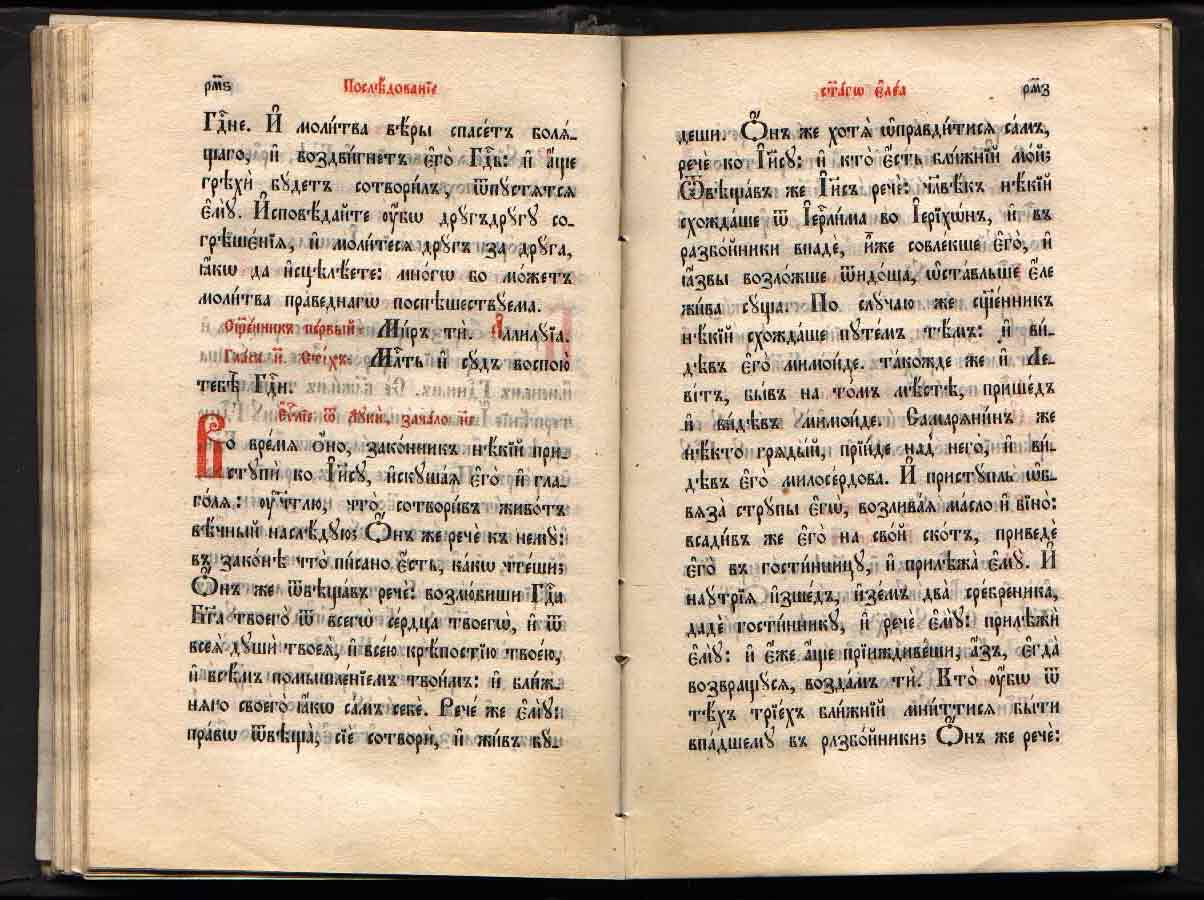 рм҃ѕ Послѣ́дованїе
Гдⷭ҇не. И҆ моли́тва вѣ́ры спасе́тъ болѧ́-
щаго, и҆ воздви́гнетъ є҆го̀ Гдⷭ҇ь: и҆ а҆́ще
грѣхѝ бу́детъ сотвори́лъ, ѿпустѧ́тсѧ
є҆мꙋ̀. И҆сповѣ́дайте ᲂу҆̀бѡ дрꙋ́гъдрꙋ́гꙋ со-
грѣше́нїѧ, и҆ моли́тесѧ дрꙋ́гъ за дрꙋ́га,
ꙗ҆́кѡ да и҆сцѣлѣ́ете: мно́гѡ бо мо́жетъ
моли́тва пра́веднагѡ поспѣшествꙋ́ема.
Сщ҃е́нникъ пе́рвый: Ми́ръ ти. А҆ллилꙋ́їа.
Гла́съ и҃. Сті́хъ: Млⷭ҇ть и҆ сꙋ́дъ воспою̀
тебѣ̀ Гдⷭ҇и.
Є҆ѵⷢ҇лїе ѿ Лꙋкѝ, зача́ло н҃г.
Во вре́мѧ ѻ҆́но, зако́нникъ нѣ́кїй при-
стꙋпѝ ко І҆и҃сꙋ, и҆скꙋша́ѧ є҆го̀ и҆ гла-
го́лѧ: ᲂу҆чт҃лю, что̀ сотвори́въ живо́тъ
вѣ́чный наслѣ́дꙋю; Ѻ҆́нъ же речѐ къ немꙋ̀:
въ зако́нѣ что̀ пи́сано є҆́сть, ка́кѡ чте́ши;
Ѻ҆́нъ же ѿвѣща́въ речѐ: возлю́биши Гдⷭ҇а
Бг҃а твоего̀ ѿ всегѡ̀ се́рдца твоегѡ̀, и҆ ѿ
всеѧ̀ дꙋшѝ твоеѧ̀, и҆ все́ю крѣ́постїю твое́ю,
и҆ всѣ́мъ помышле́нїемъ твои́мъ: и҆ бли́ж-
нѧго своего̀ ꙗ҆́кѡ са́мъ себѐ. Рече́ же є҆мꙋ̀:
пра́вѡ ѿвѣща̀, сїѐ сотворѝ, и҆ жи́въ бꙋ-
ст҃а́гѡ є҆ле́а рм҃з
деши. Ѻ҆́нъ же хотѧ̀ ѡ҆правди́тисѧ са́мъ,
речѐ ко І҆и҃сꙋ: и҆ кто̀ є҆́сть бли́жнїй мо́й;
Ѿвѣща́въ же І҆и҃съ речѐ: чл҃вѣ́къ нѣ́кїй
схожда́ше ѿ І҆ерⷭ҇ли́ма во І҆ерїхѡ́нъ, и҆ въ
разбо́йники впадѐ, и҆̀же совле́кше є҆го̀, и҆
ꙗ҆́звы возло́жше ѿидо́ша, ѡ҆ста́вльше є҆ле
жи́ва сꙋ́ща. По слꙋ́чаю же сщ҃е́нникъ
нѣ́кїй схожда́ше пꙋте́мъ тѣ́мъ: и҆ ви́-
дѣвъ є҆го̀ мимои́де. та́кожде же и҆ Ле-
ви́тъ, бы́въ на то́мъ мѣ́стѣ, прише́дъ
и҆ ви́дѣвъ мимои́де. Самарѧни́нъ же
нѣ́кто грѧды́й, прїи́де над̾ него̀, и҆ ви́-
дѣвъ є҆го̀ милосе́рдова. И҆ пристꙋ́пль ѡ҆б-
вѧза̀ стрꙋ́пы є҆гѡ̀, возлива́ѧ ма́сло и҆ вїно̀:
всади́въ же є҆го̀ на сво́й ско́тъ, приведѐ
є҆го̀ въ гости́нницꙋ, и҆ прилѣжа̀ є҆мꙋ̀. И҆
наꙋ́трїѧ и҆зше́дъ, и҆зе́мъ два̀ сре́бреника,
дадѐ гости́нникꙋ, и҆ речѐ є҆мꙋ̀: прилѣжѝ
є҆мꙋ̀: и҆ є҆́же а҆́ще прїиждиве́ши, а҆́зъ, є҆гда̀
возвращꙋ́сѧ, возда́мъ тѝ. Кто̀ ᲂу҆̀бѡ ѿ
тѣ́хъ трїе́хъ бли́жнїй мни́ттисѧ бы́ти
впа́дшемꙋ въ разбо́йники; Ѻ҆́нъ же речѐ: